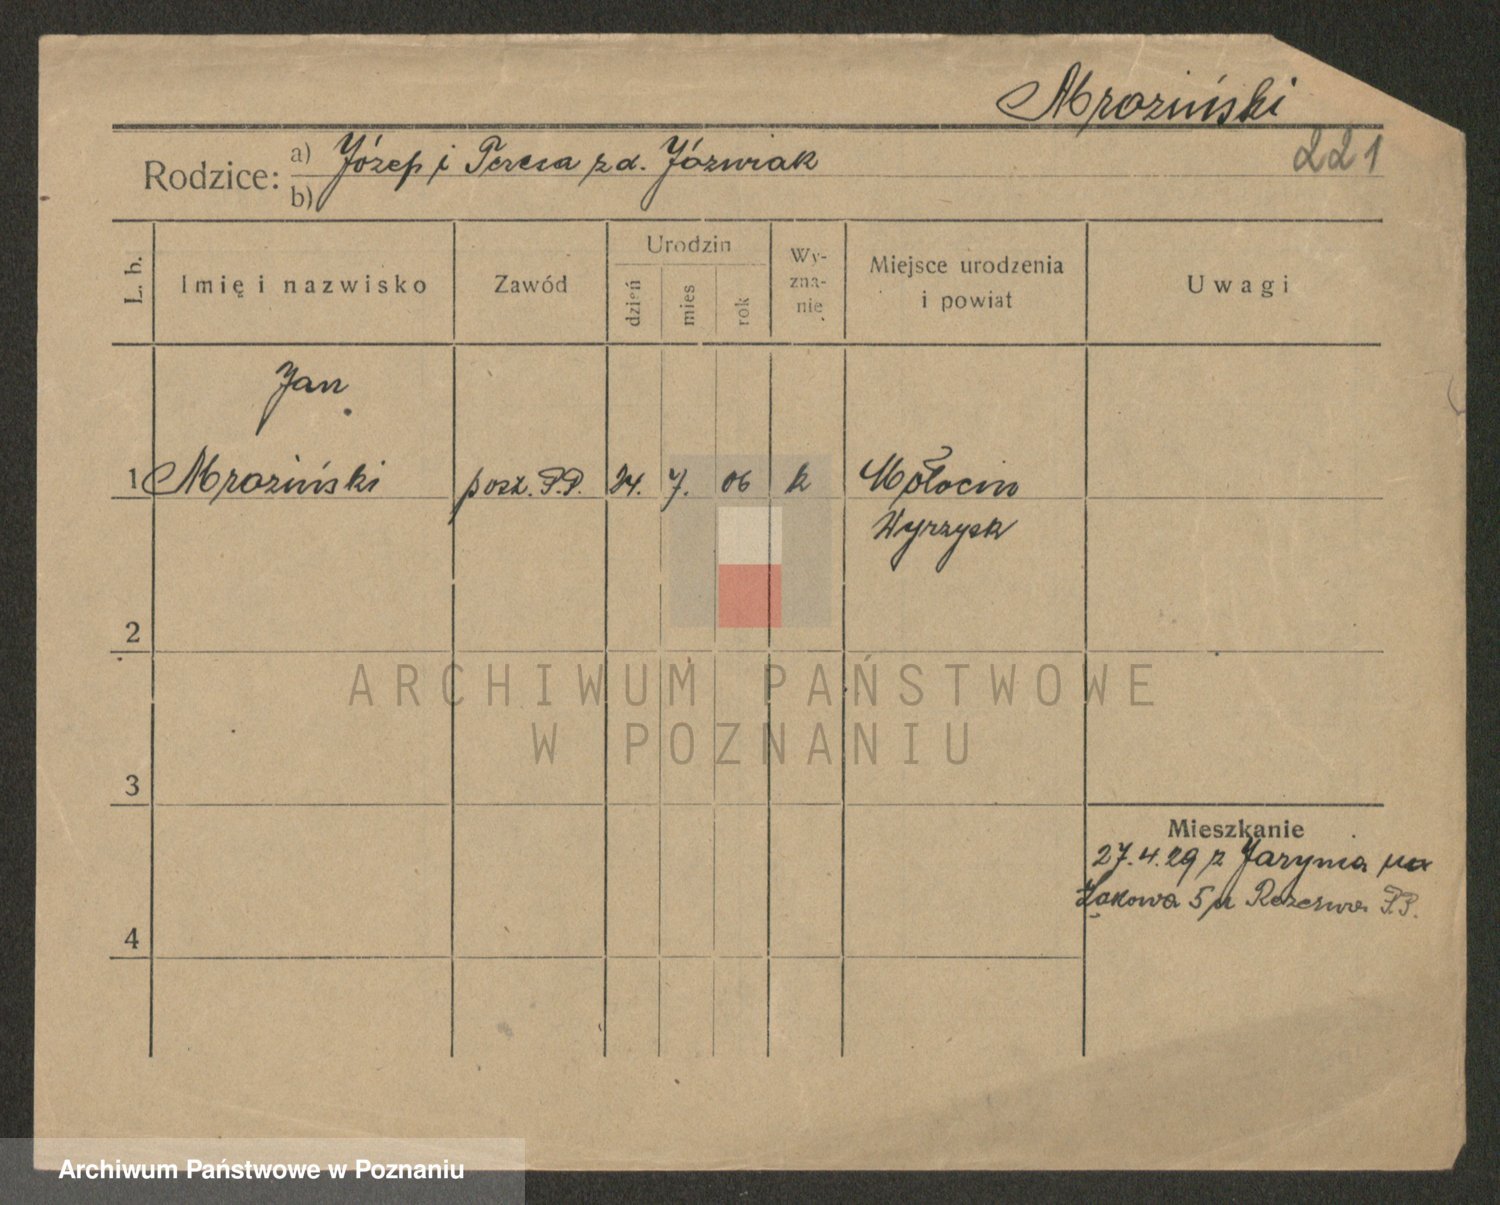 Mroziński
221
Rodzice: a) Józef i Teresa z d. Józwiak
b)
L. b.
Imię i nazwisko
Zawód
Urodzin
dzień
mies
rok
Wy-
zna-
nie
Miejsce urodzenia
i powiat
Uwagi
Jan
1 Mroziński posz. P.P. 24. 7. 06 k
Wyrzysk
2
3
4
Mieszkanie
27.4.29 z Jaryma na
Łąkowa 5 u Rezerwa P.P.
ARCHIWUM PAŃSTWOWE
W POZNANIU
Archiwum Państwowe w Poznaniu